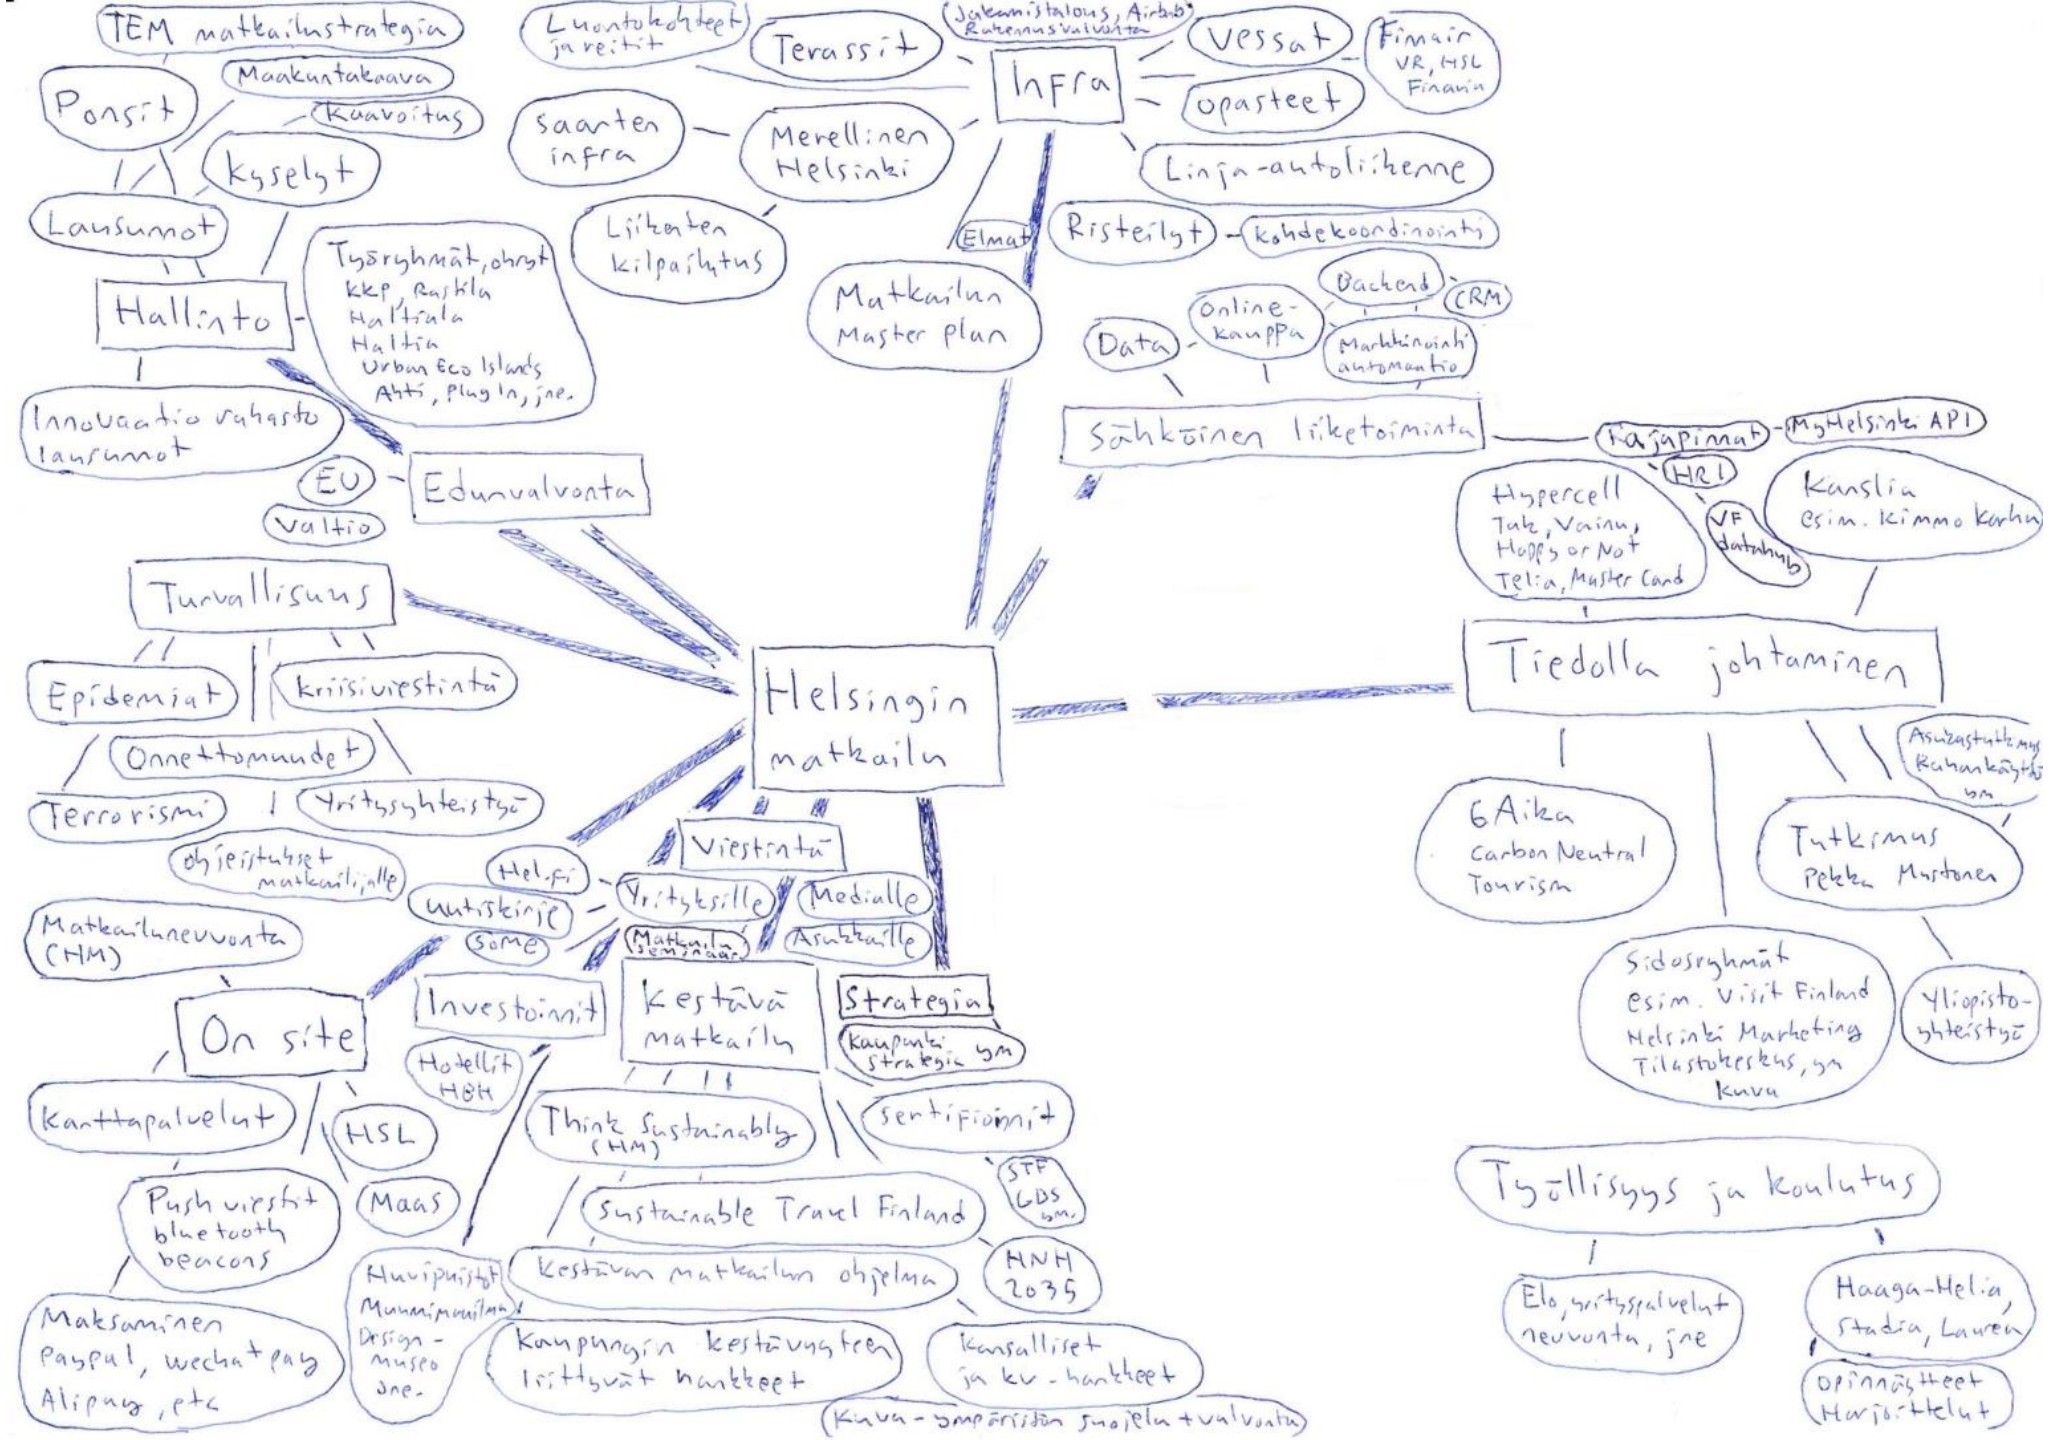 TEM matkailustrategia
Ponsit
Maakuntakaava
Kaavoitus
Kyselyt
Lausunnot
Hallinto
Työryhmät, ohryt
KKP, Rastila
Haltiala
Haltia
Urban Eco Islands
Ahti, PlugIn, jne.
Innovaatio rahasto
lausunnot
EU
Valtio
Edunvalvonta
Luontokohteet
ja reitit
Terassit
Jakamistalous, Airbnb
Rakennusvalvonta
Infra
Vessat
Finnair
VR, HSL
Finavia
opasteet
Saarten
infra
Merellinen
Helsinki
Linja-autoliikenne
Liikenten
kilpailutus
Elmat
Risteilyt
kohdekoordinointi
Matkailun
Master plan
Data
Online-
kauppa
Backend
CRM
Markkinointi
automaatio
Sähköinen liiketoiminta
Rajapinnat
MyHelsinki API
HRI
VF
datahub
Hypercell
Tak, Vainu,
Happy or Not
Telia, Master Card
Kanslia
esim. Kimmo Karhu
Tiedolla johtaminen
6 Aika
Carbon Neutral
Tourism
Asukastutkimus
Rahankäyttö
ym
Tutkimus
Pekka Mustonen
Sidosryhmät
esim. Visit Finland
Helsinki Marketing
Tilastokeskus, ym
Kuva
Yliopisto-
yhteistyö
Työllisyys ja koulutus
Elo, yrityspalvelut
neuvonta, jne
Haaga-Helia,
Stadia, Laurea
Opinnäytteet
Harjoittelut
Helsingin
matkailu
Turvallisuus
Epidemiat
Kriisiviestintä
Onnettomuudet
Terrorismi
Yritysyhteistyö
ohjeistukset
matkailijalle
Viestintä
Hel.fi
Yrityksille
Medialle
Uutiskirje
Some
Matkailu
seminaari
Asukkaille
Matkailuneuvonta
(HM)
On site
Karttapalvelut
HSL
Maas
Push viestit
bluetooth
beacons
Maksaminen
paypal, wechat pay
Alipay, etc
Investoinnit
Hotellit
HBH
Huvipuistot
Muumimaailma
Design-
museo
jne.
Kestävä
matkailu
Strategia
Kaupunki
strategia ym
Think Sustainably
(HM)
Sertifioinnit
STF
GDS
ym.
Sustainable Travel Finland
HNH
2035
Kestävän matkailun ohjelma
Kaupungin kestävyyteen
liittyvät hankkeet
Kansalliset
ja kv-hankkeet
Kuva-ympäristön suojelu + valvonta